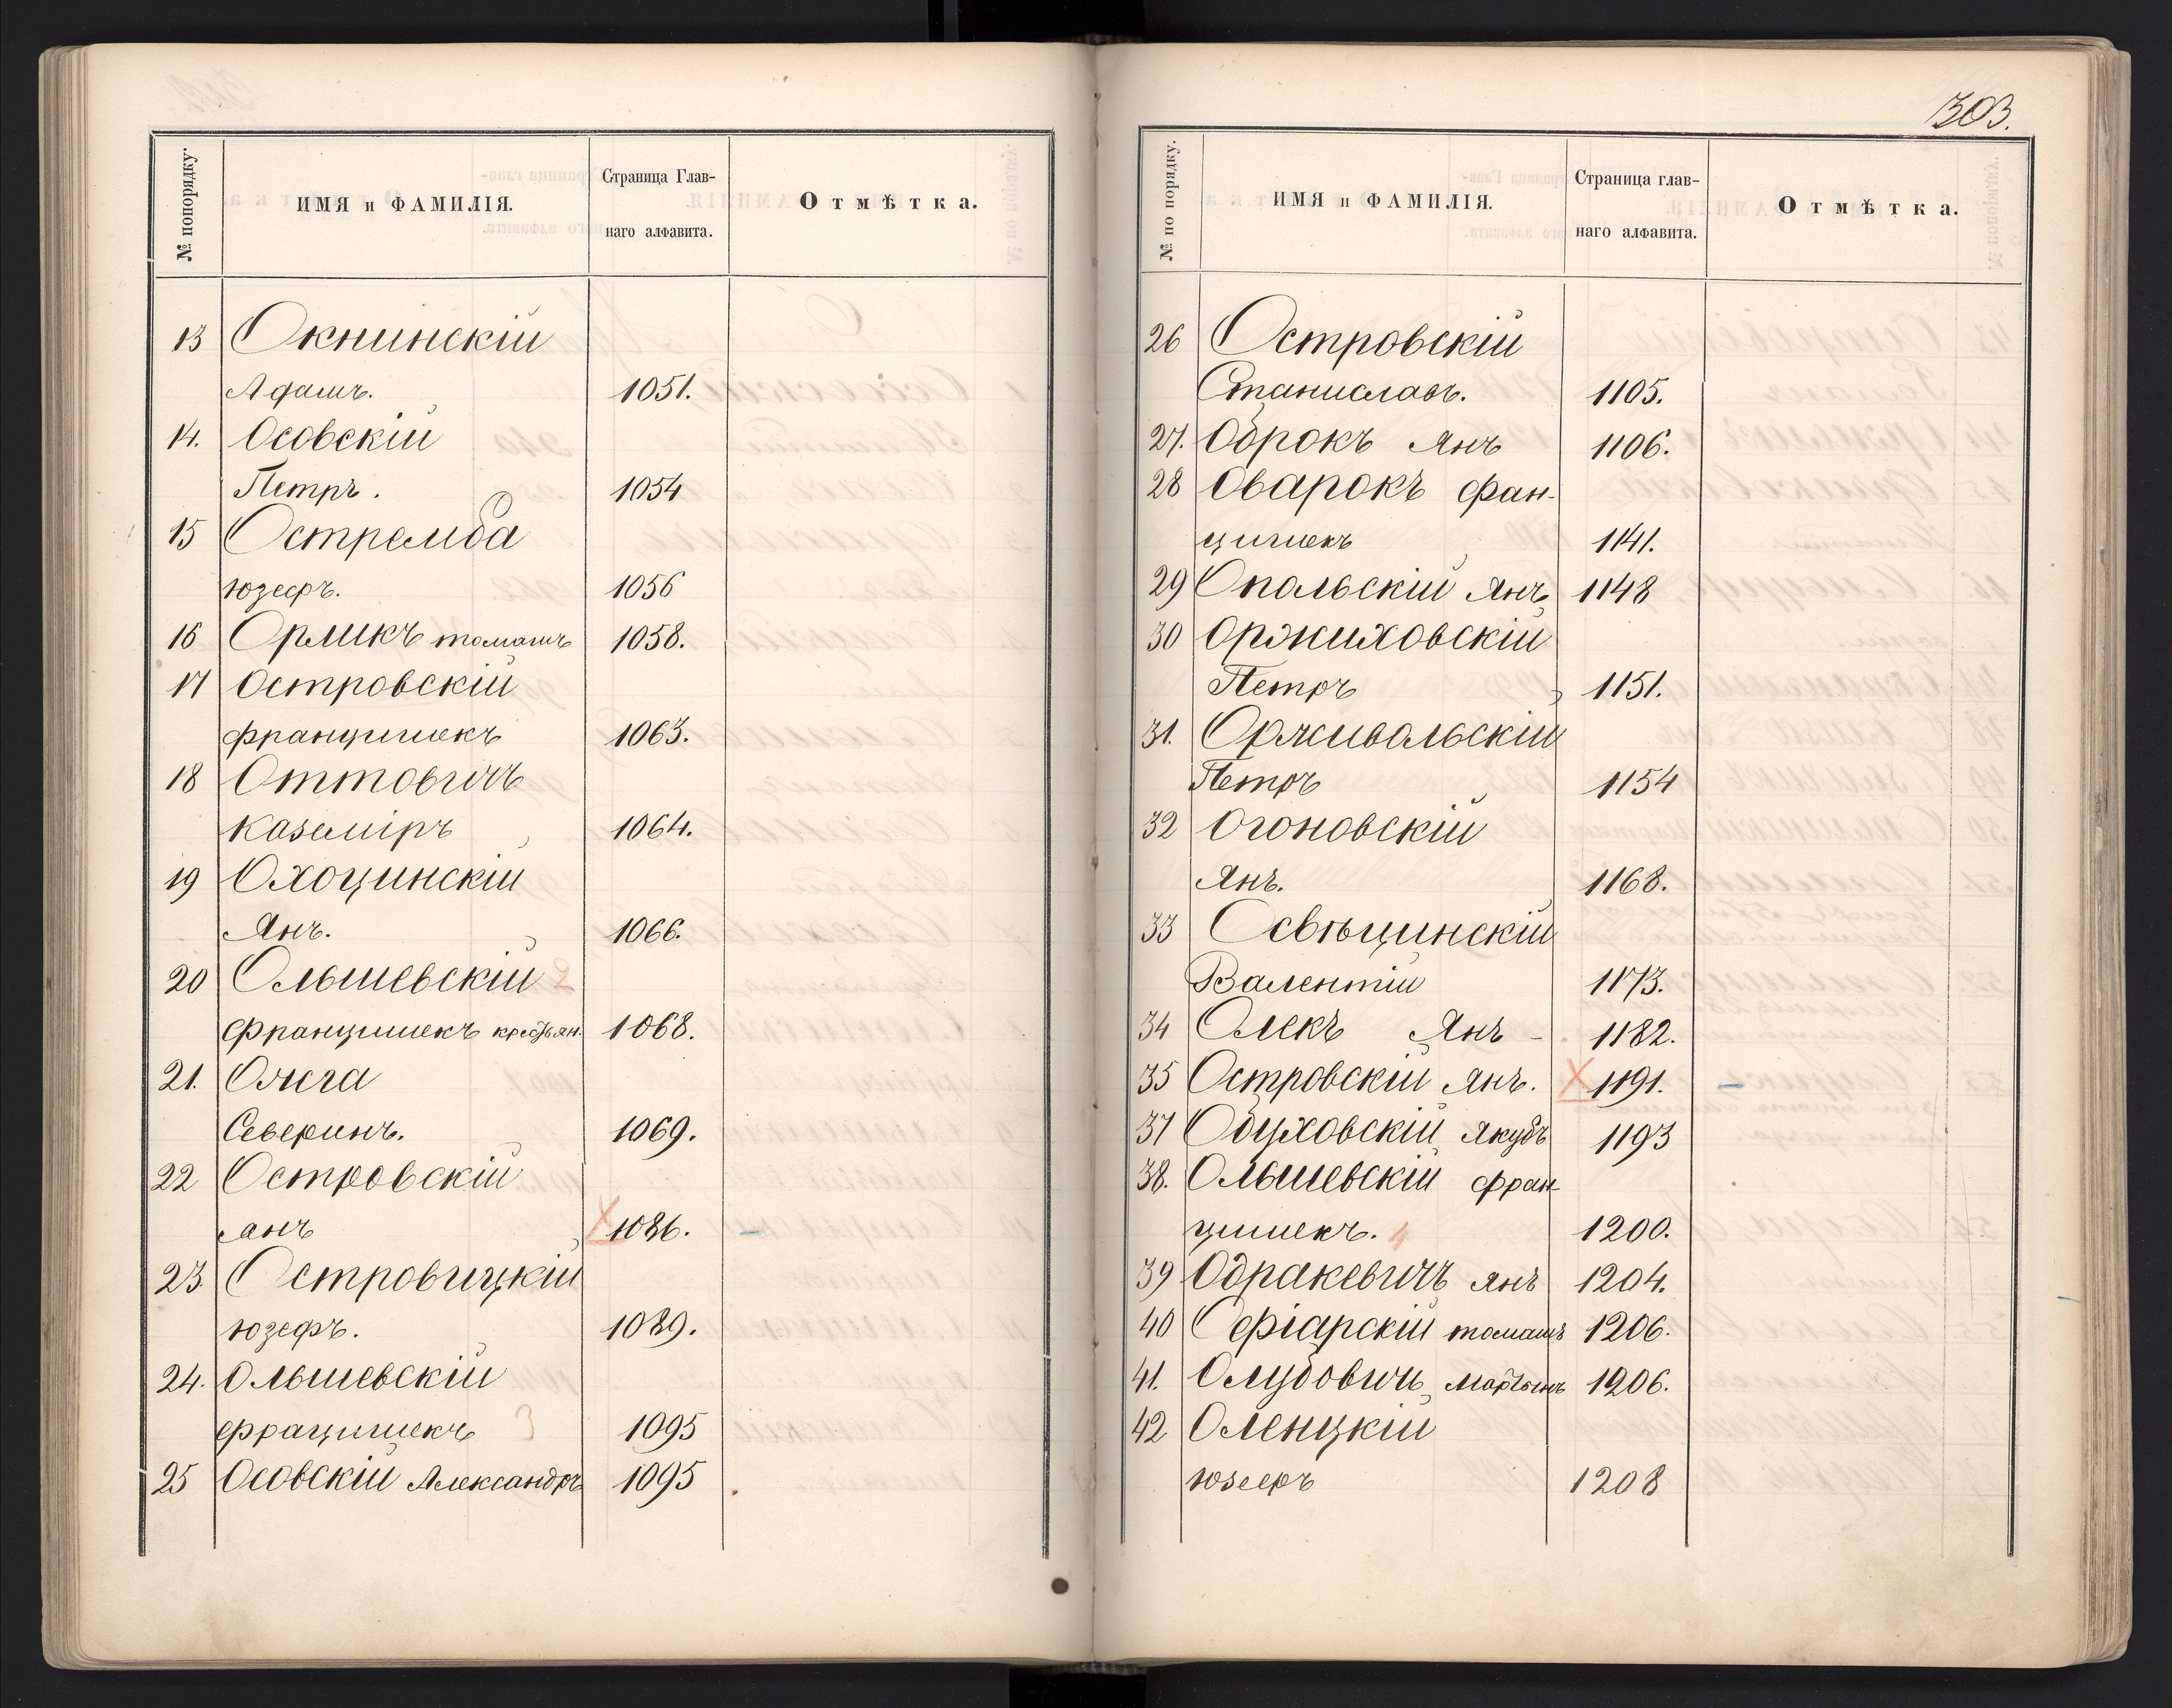 № попорядку.
ИМЯ и ФАМИЛІЯ.
Страница Глав-
наго алфавита.
Отмѣтка.
13 Окнинскій
Адамъ. 1051.
14. Осовскій
Петръ. 1054
15 Остремба
Юзефъ. 1056
16 Орликъ Томашъ 1058.
17 Островскій
Францишекъ 1063.
18 Оттовичъ
Казиміръ 1064.
19 Охоцинскій
Янъ. 1066.
20 Ольшевскій 2
Францишекъ крестьян. 1068.
21. Ожга
Северинъ. 1069.
22 Островскій
Янъ X 1086. –
23 Островицкій
Юзефъ. 1089.
24. Ольшевскій
Фрацишекъ 3 1095
25 Осовскій Александръ 1095
303.
№ по порядку.
ИМЯ и ФАМИЛІЯ.
Страница глав-
наго алфавита.
Отмѣтка.
26 Островскій
Станиславъ. 1105.
27. Оброкъ Янъ 1106.
28 Оварокъ Фан-
цишекъ 1141.
29 Опольскій Янъ 1148
30 Оржиховскій
Петръ 1151.
31. Орживальскій
Петръ 1154
32 Огоновскій
Янъ. 1168.
33 Освѣцинскій
Валентій 1173.
34 Олекъ Янъ – 1182.
35 Островскій Янъ. X 1191. –
37 Обуховскій Якубъ 1193
38. Ольшевскій Фран-
цишекъ. 4 1200.
39 Одракевичъ Янъ 1204.
40 Офіарскій Томашъ 1206.
41. Олудовичъ Мартынъ 1206.
42 Оленцкій
Юзефъ 1208